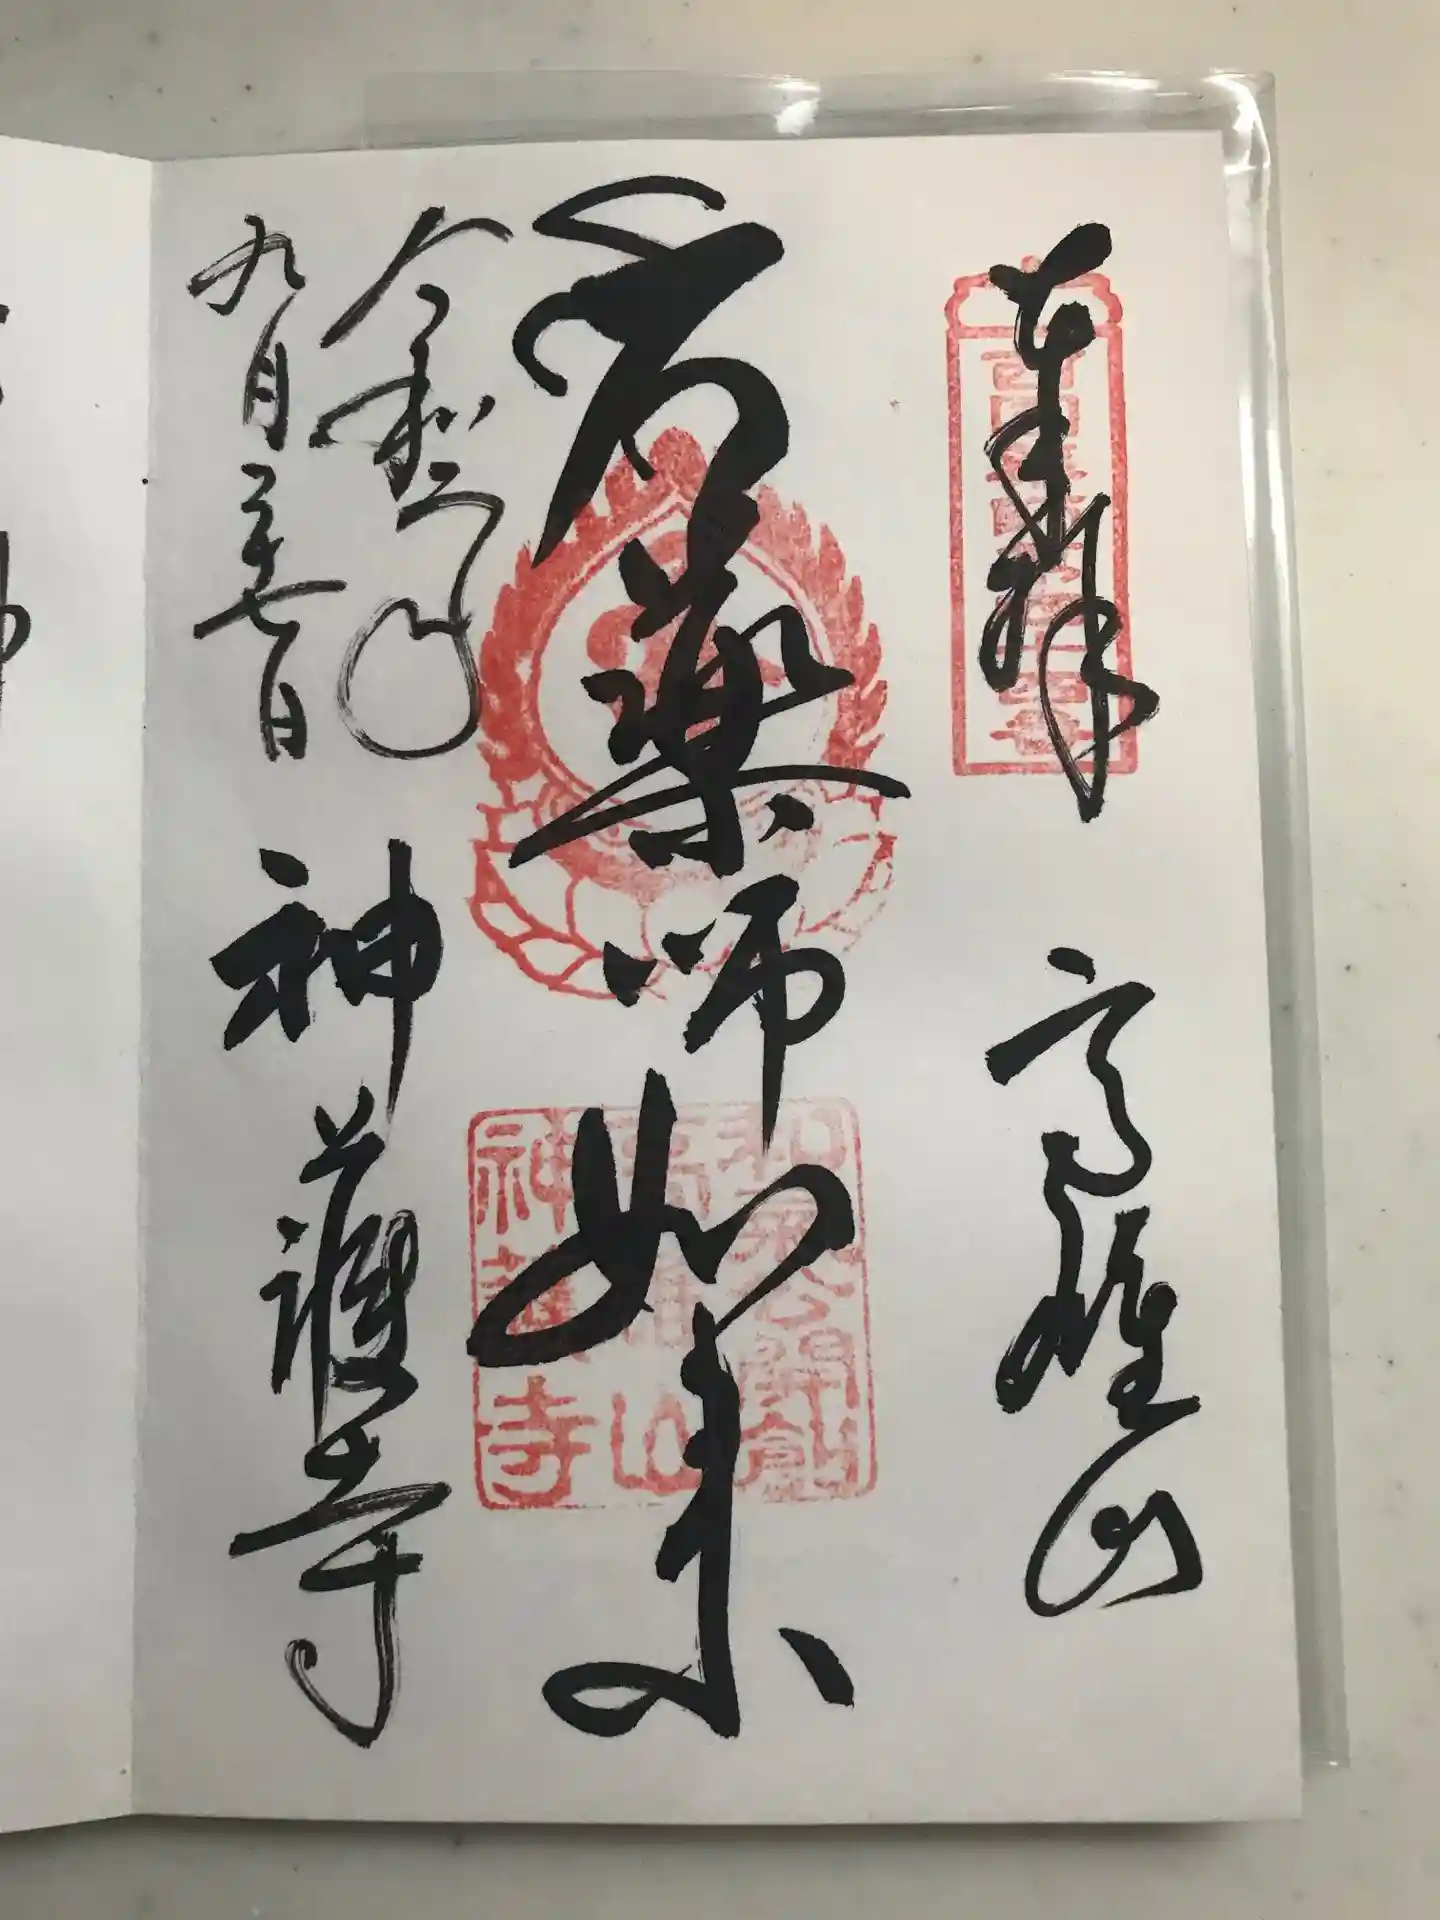 奉拝 高雄山
薬師如来
令和 年
九月二十七日
神護寺
和気公開創
高雄山
神護寺